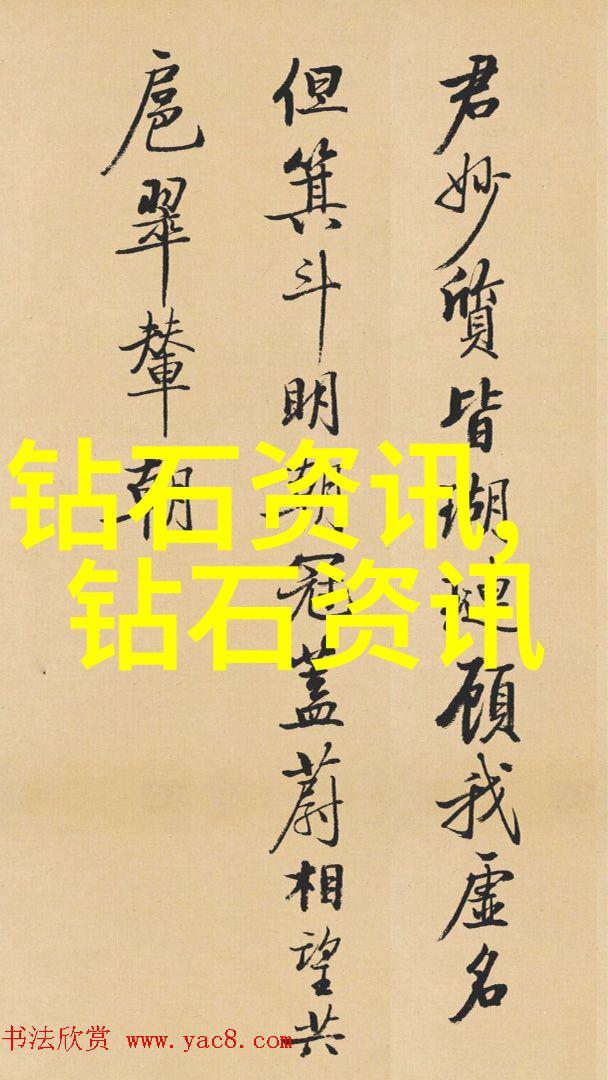 君妙質皆瑚璉顧我虛名
但箕斗明朝冠蓋蔚相望共
扈翠輦朝
钻石资讯,
钻石资讯
书法欣赏 www.yac8.com